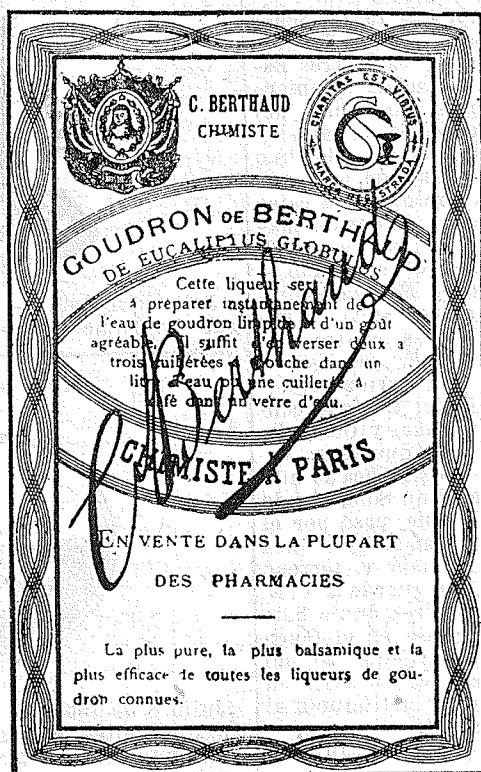 C. BERTHAUD
CHIMISTE
CHARITAS EST VIRTUS
MARCA REGISTRADA
SG
GOUDRON DE BERTHAUD
DE EUCALIPTUS GLOBULUS
Cette liqueur sert
à préparer instantanément de
l'eau de goudron limpide et d'un goût
agréable. Il suffit d'en verser deux a
trois cuillérées à bouche dans un
litre d'eau ou une cuillerée à
café dans un verre d'eau.
C Berthaud
CHIMISTE À PARIS
EN VENTE DANS LA PLUPART
DES PHARMACIES
La plus pure, la plus balsamique et la
plus efficace de toutes les liqueurs de gou-
dron connues.